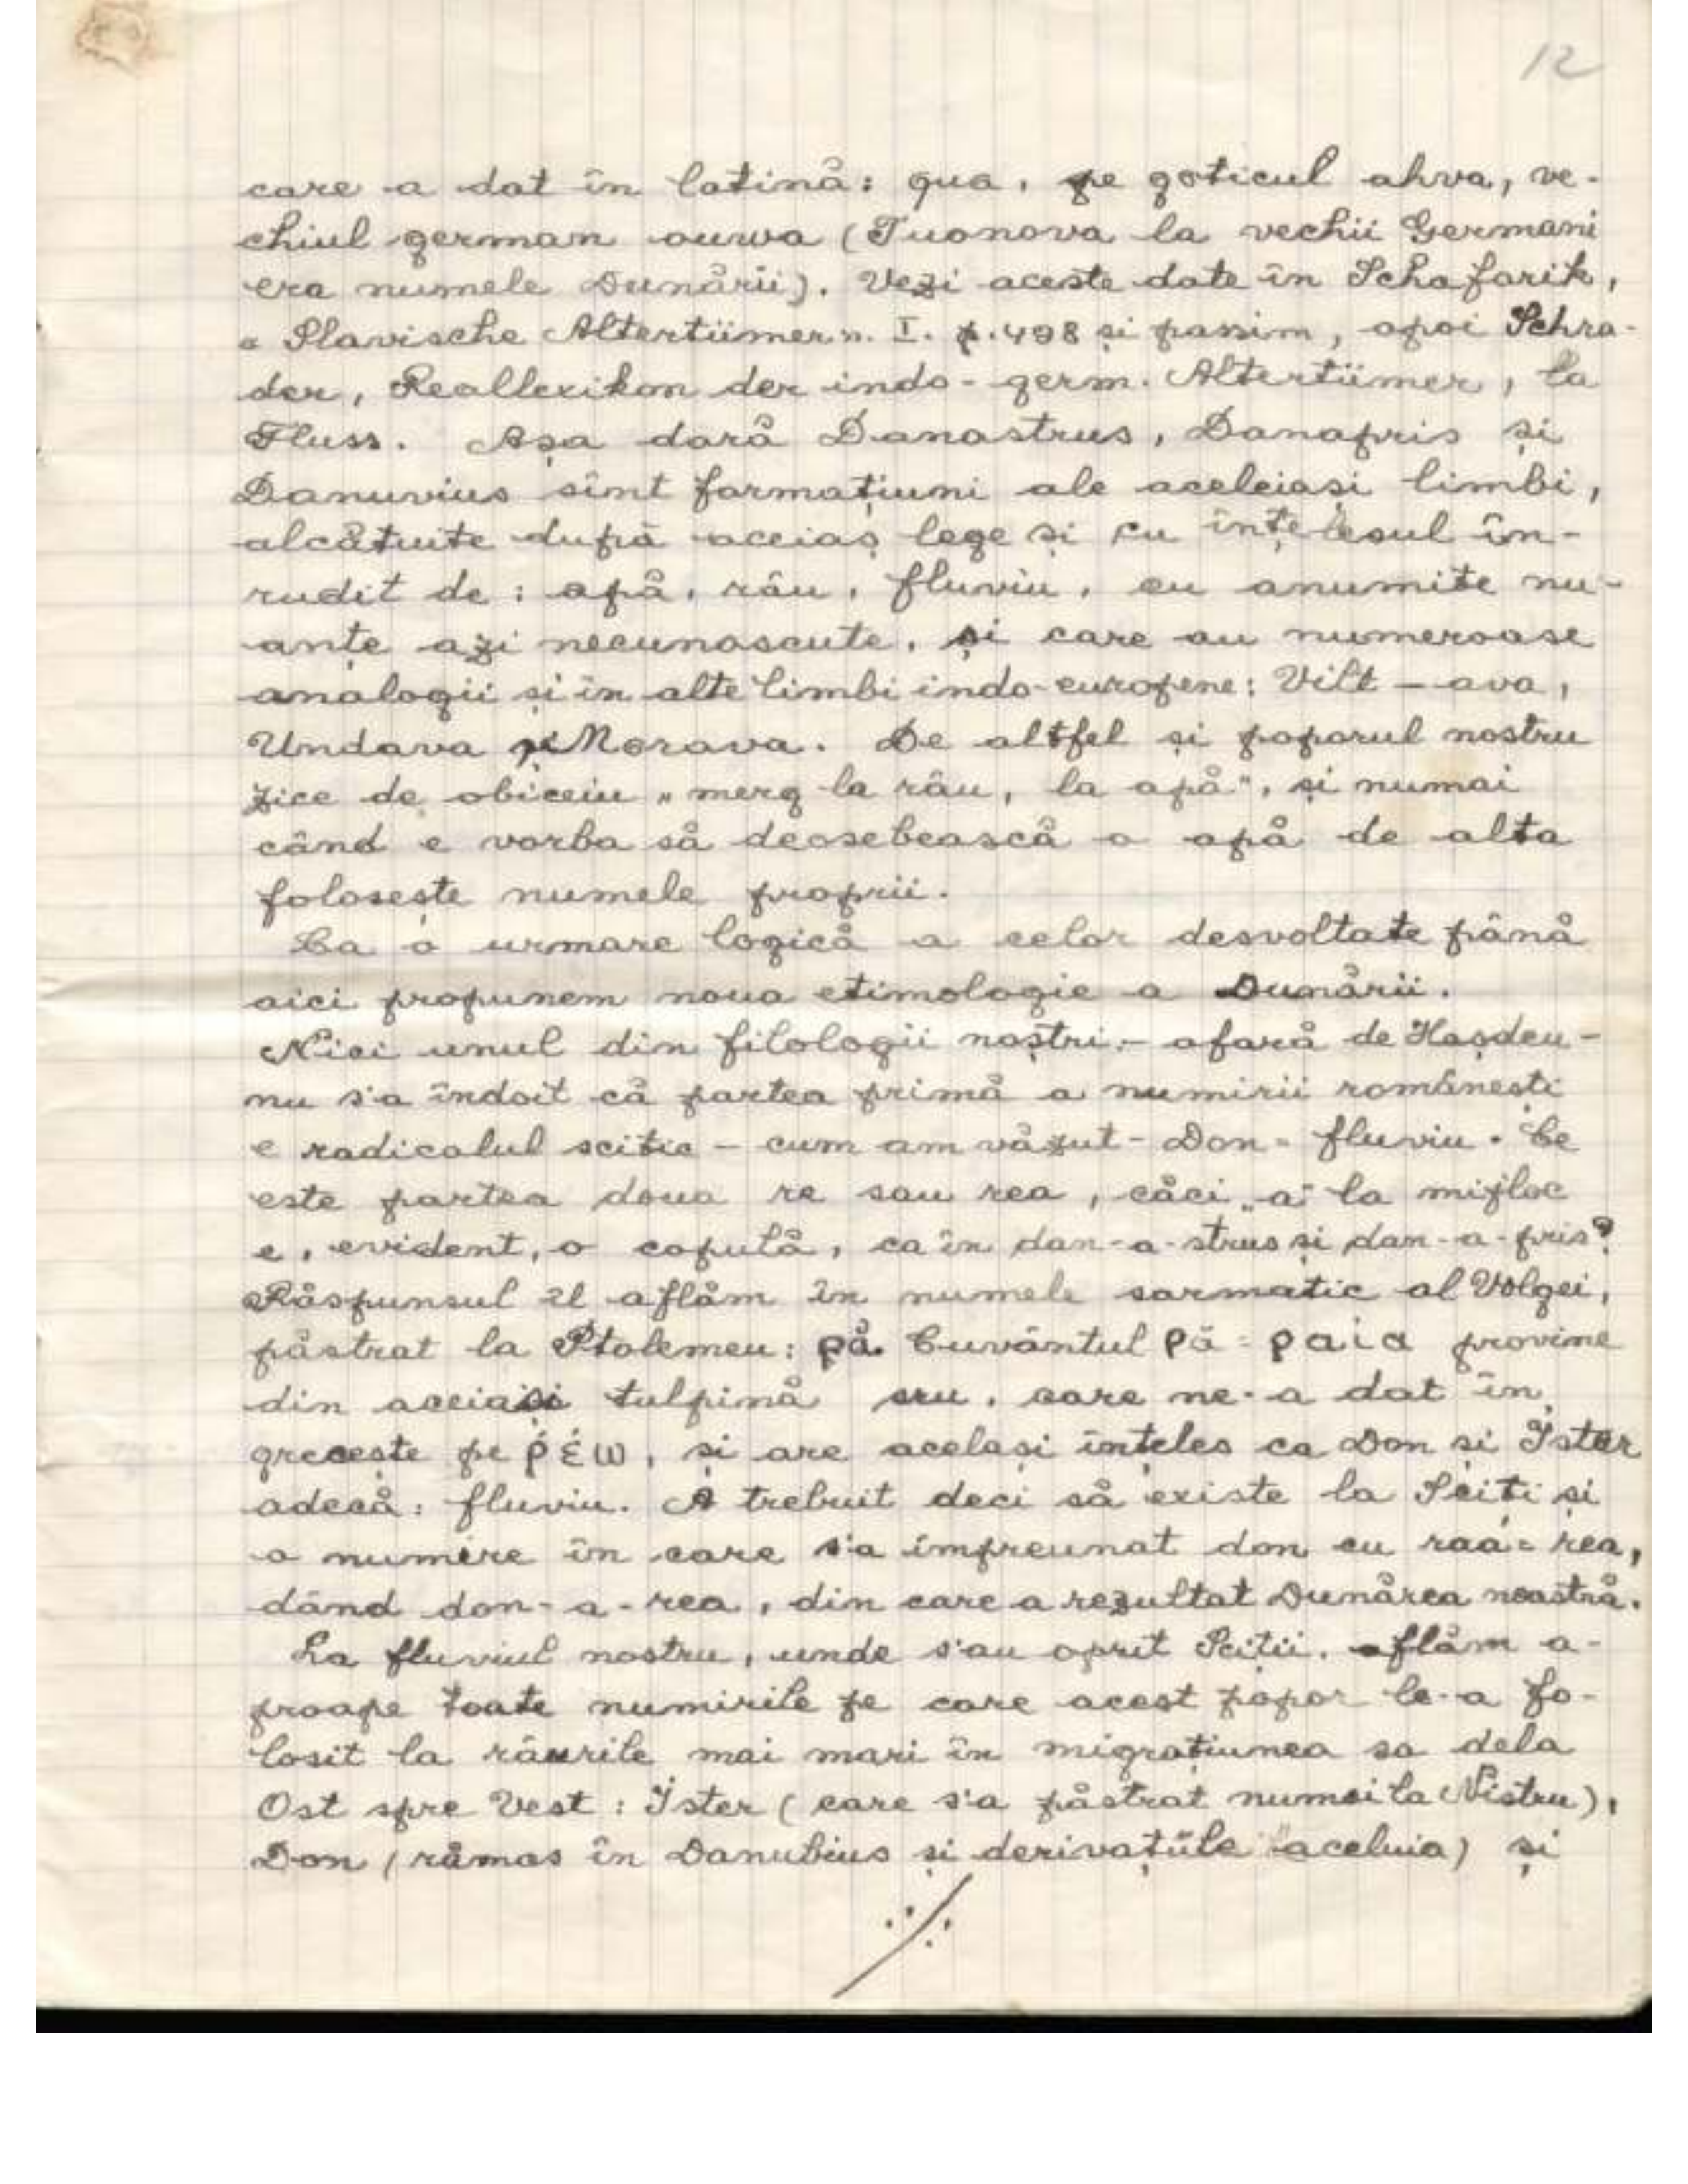 12
care a dat în latină: qua, pe goticul ahva, ve-
chiul german ouwa (Tuonova la vechii Germani
era numele Dunării). Vezi aceste date în Schafarik,
« Slavische Altertümer ». I. p. 498 și passim, apoi Schra-
der, Reallexikon der indo-germ. Altertümer, la
Fluss. Așa dară Danastrus, Danapris și
Danuvius sînt formațiuni ale aceleiași limbi,
alcătuite după aceiaș lege și cu înțelesul în-
rudit de: apă, râu, fluviu, cu anumite nu-
anțe azi necunoscute, și care au numeroase
analogii și în alte limbi indo-europene: Vilt-ava,
Undava și Morava. De altfel și poporul nostru
zice de obiceiu „merg la râu, la apă", și numai
când e vorba să deosebească o apă de alta
folosește numele proprii.
Ca o urmare logică a celor desvoltate până
aici propunem noua etimologie a Dunării.
Nici unul din filologii noștri - afară de Hașdeu -
nu s'a îndoit că partea primă a numirii românești
e radicalul scitic - cum am văzut - Don = fluviu. Ce
este partea doua re sau rea, căci „a" la mijloc
e, evident, o copulă, ca în dan-a-strus și dan-a-pris?
Răspunsul îl aflăm în numele sarmatic al Volgei,
păstrat la Ptolemeu: ρά. Cuvântul ρά = ραια provine
din aceiași tulpină sru, care ne-a dat în
grecește pe ῥέω, și are același înțeles ca Don și Ister
adecă: fluviu. A trebuit deci să existe la Sciți și
o numire în care s'a împreunat don cu raa = rea,
dând don-a-rea, din care a rezultat Dunărea noastră.
La fluviul nostru, unde s'au oprit Sciții, aflăm a-
proape toate numirile pe care acest popor le-a fo-
losit la râurile mai mari în migrațiunea sa dela
Ost spre Vest: Ister (care s'a păstrat numai la Nistru),
Don (rămas în Danubius și derivațiile aceluia) și